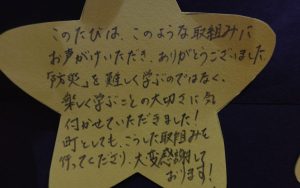 このたびは、このような取組みに
お声がけいただき、ありがとうございました。
「防災」を難しく学ぶのではなく、
楽しく学ぶことの大切さに気
付かせていただきました!
町としても、こうした取組みを
行ってくださり、大変感謝して
おります!